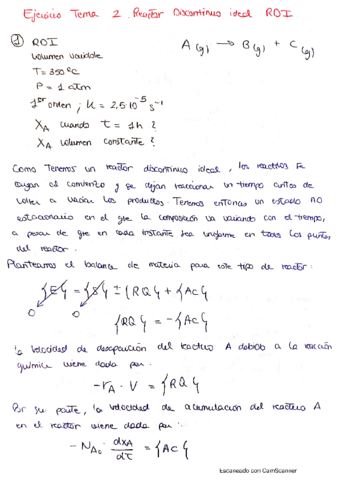 Ejercicio Tema 2. Reactor Discontinuo ideal RDI
① RDI
A(g) → B(g) + C(g)
Volumen variable
T = 350 ºC
P = 1 atm
1er orden ; K = 2,5·10⁻⁵ s⁻¹
X_A cuando t = 1h ?
X_A volumen constante ?
Como Tenemos un reactor discontinuo ideal, los reactivos se
cargan al comienzo y se dejan reaccionar un tiempo antes de
volver a vaciar los productos. Tenemos entonces un estado NO
estacionario en el que la composición va variando con el tiempo,
a pesar de que en cada instante sea uniforme en todos los puntos
del reactor.
Planteamos el balance de materia para este tipo de reactor:
{E} = {S} ± {RQ} + {Ac}
0 0
{RQ} = -{Ac}
la velocidad de desaparición del reactivo A debido a la reacción
química viene dada por:
-r_A · V = {RQ}
Por su parte, la velocidad de acumulación del reactivo A
en el reactor viene dada por:
-N_A0 · dx_A/dt = {Ac}
Escaneado con CamScanner